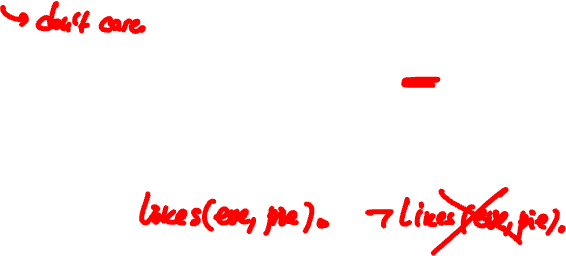 → don't care
likes(eve, pie). ¬likes(eve, pie).